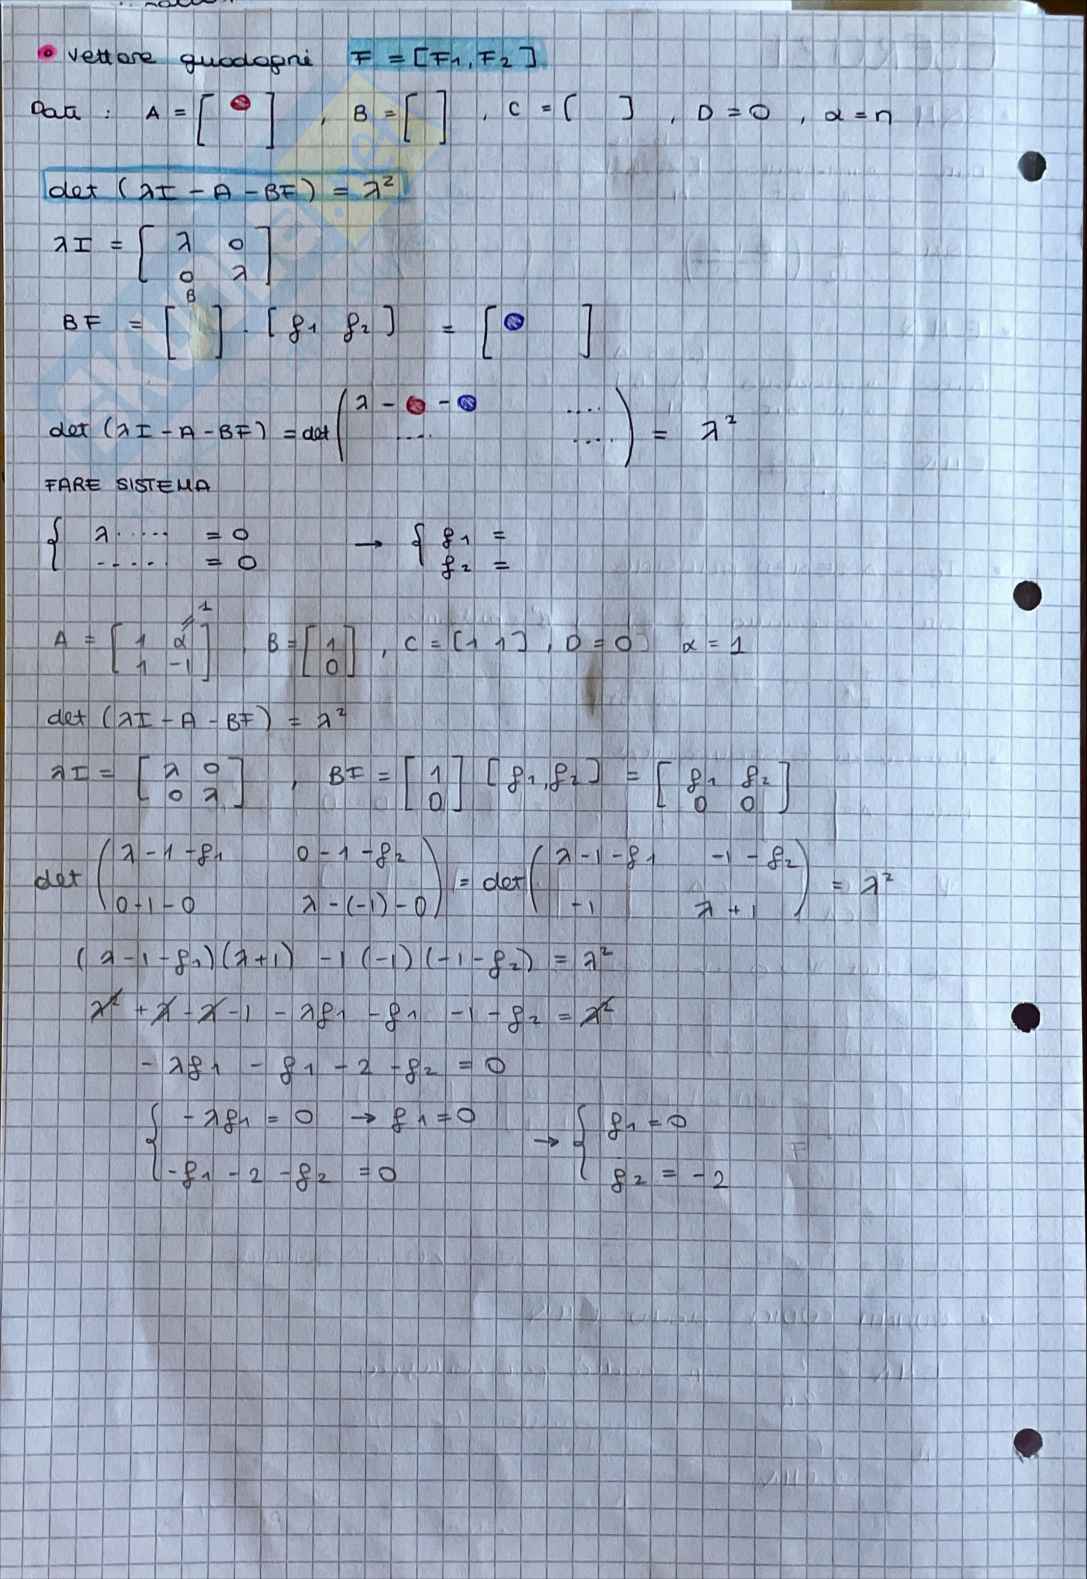 • Vettore guadagni F = [F1, F2]
Data : A = [ ] , B = [ ] , C = [ ] , D = 0 , α = n
det (λI - A - BF) = λ²
λI = [ λ 0
0 λ ]
B
BF = [ ] [ f1 f2 ] = [ ]
det (λI - A - BF) = det ( λ - - ....
.... .... ) = λ²
FARE SISTEMA
{ λ ..... = 0 → { f1 =
..... = 0 f2 =
1
A = [ 1 α , B = [ 1 , C = [1 1] , D = 0 α = 1
1 -1 ] 0 ]
det (λI - A - BF) = λ²
λI = [ λ 0 , BF = [ 1 [ f1, f2 ] = [ f1 f2
0 λ ] 0 ] 0 0 ]
det ( λ - 1 - f1 0 - 1 - f2 = det ( λ - 1 - f1 -1 - f2 = λ²
0 - 1 - 0 λ - (-1) - 0 ) -1 λ + 1 )
(λ - 1 - f1)(λ+1) - 1 (-1) (-1 - f2) = λ²
λ² + λ - λ - 1 - λf1 - f1 - 1 - f2 = λ²
- λf1 - f1 - 2 - f2 = 0
{ - λf1 = 0 → f1 = 0 → { f1 = 0
-f1 - 2 - f2 = 0 f2 = -2